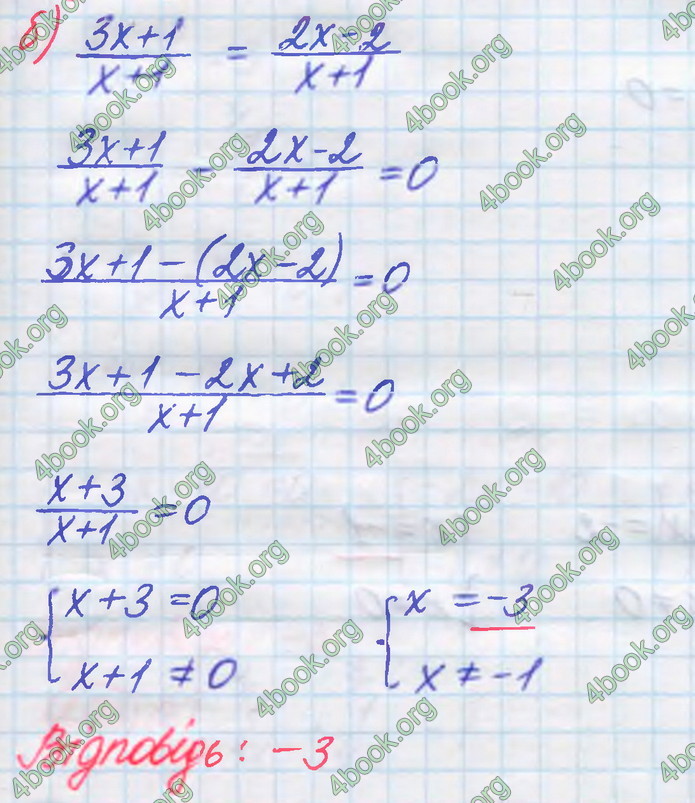 б) (3x+1)/(x+1) = (2x-2)/(x+1)
(3x+1)/(x+1) - (2x-2)/(x+1) = 0
(3x+1-(2x-2))/(x+1) = 0
(3x+1-2x+2)/(x+1) = 0
(x+3)/(x+1) = 0
{ x+3 = 0 { x = -3
x+1 ≠ 0 x ≠ -1
Відповідь: -3
4book.org